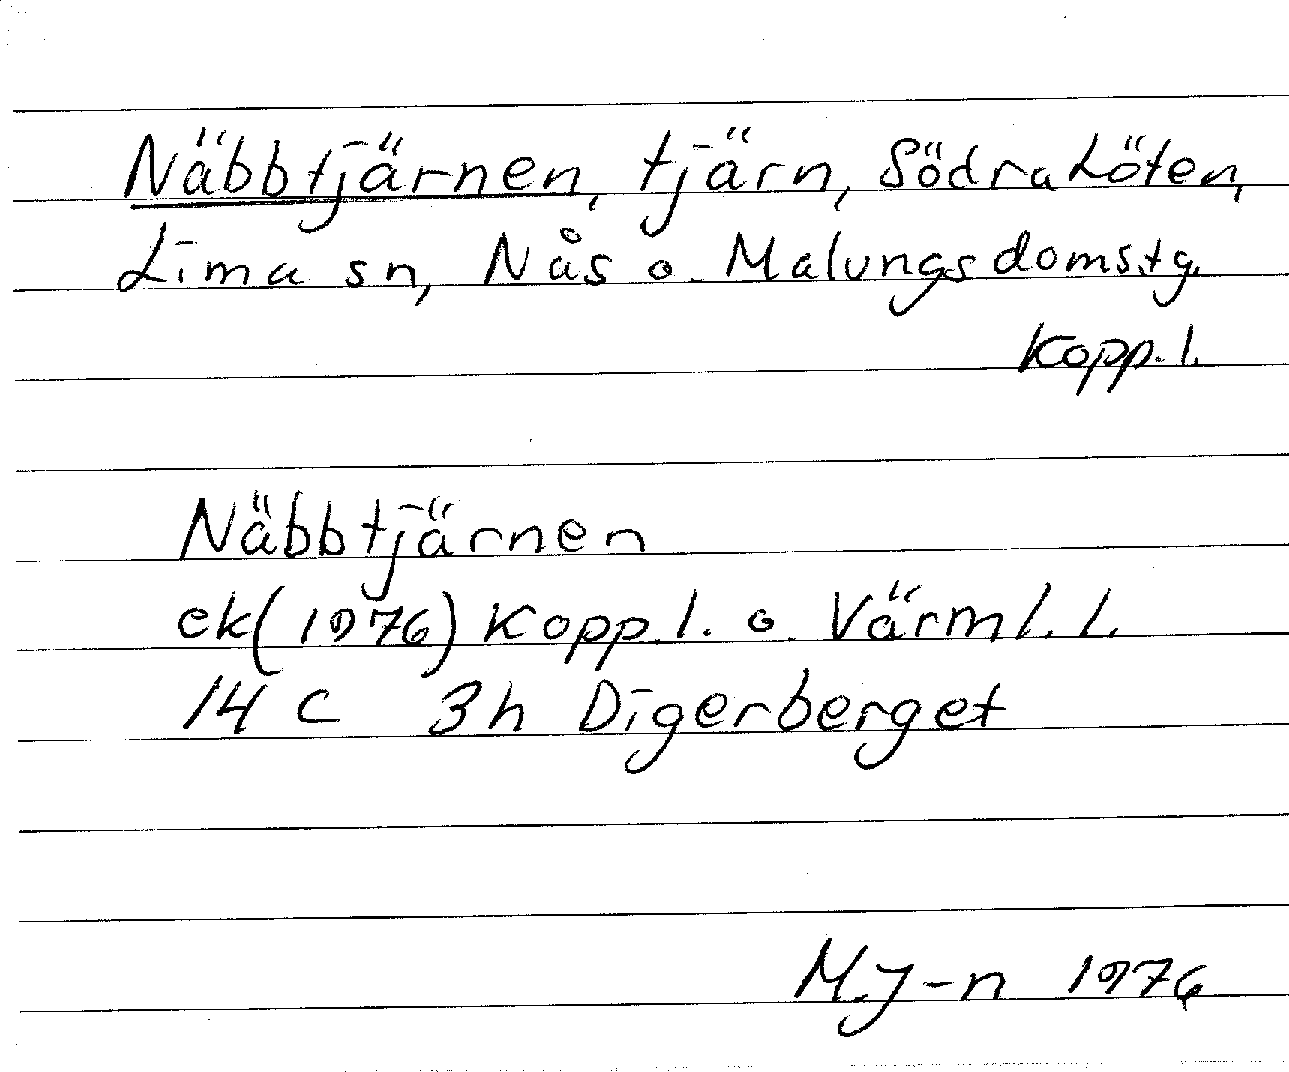 Näbbtjärnen, tjärn, Södra Löten,
Lima sn, Nås o. Malungs doms.tg.
Kopp. l.
Näbbtjärnen
ek (1976) Kopp. l. o. Värml. l.
14 C 3h Digerberget
M.J-n 1976